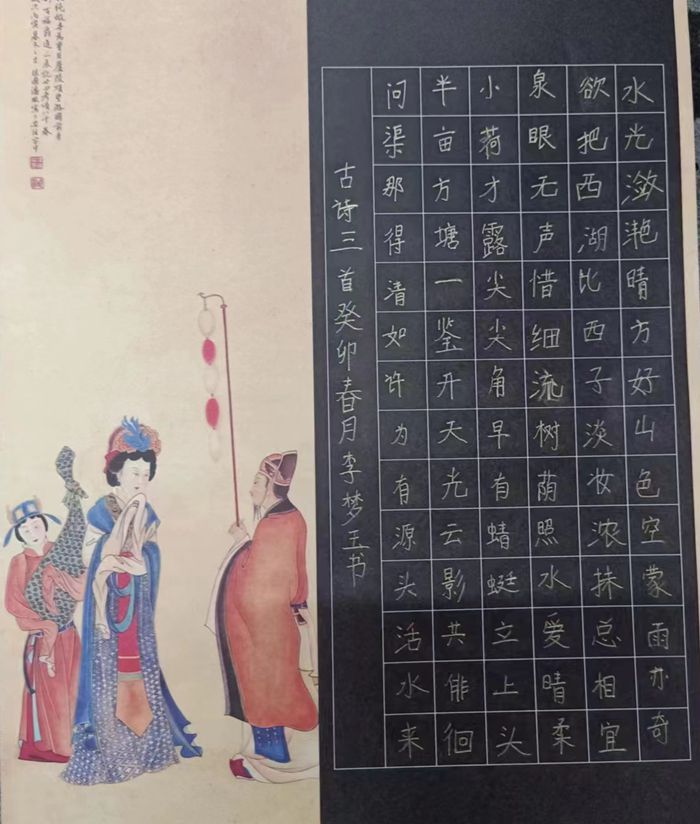 水光潋滟晴方好山色空蒙雨亦奇
欲把西湖比西子淡妆浓抹总相宜
泉眼无声惜细流树荫照水爱晴柔
小荷才露尖尖角早有蜻蜓立上头
半亩方塘一鉴开天光云影共徘徊
问渠那得清如许为有源头活水来
古诗三首癸卯春月李梦玉书